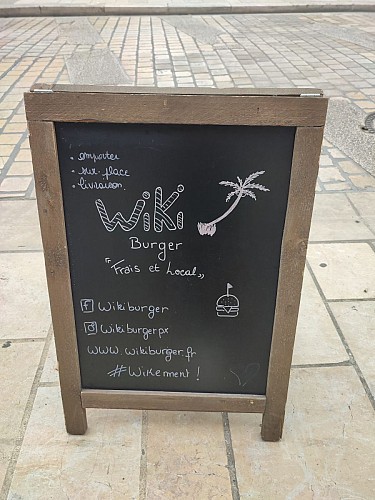 • emporter
• sur place
• livraison
Wiki
Burger
"Frais et Local"
Wikiburger
Wikiburgerpx
WWW.wikiburger.fr
#Wikement !